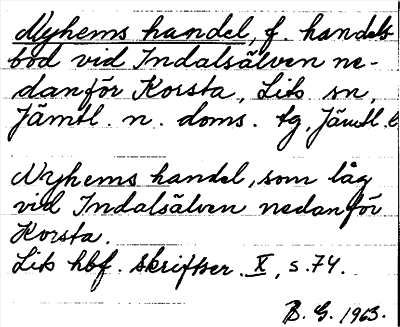 Nyhems handel, f. handels
bod vid Indalsälven ne-
danför Korsta, Lits sn,
Jämtl. n. doms. tg, Jämtl. l
Nyhems handel, som låg
vid Indalsälven nedanför
Korsta.
Lits hbf. skriftser. X, s. 74.
B. G. 1963.